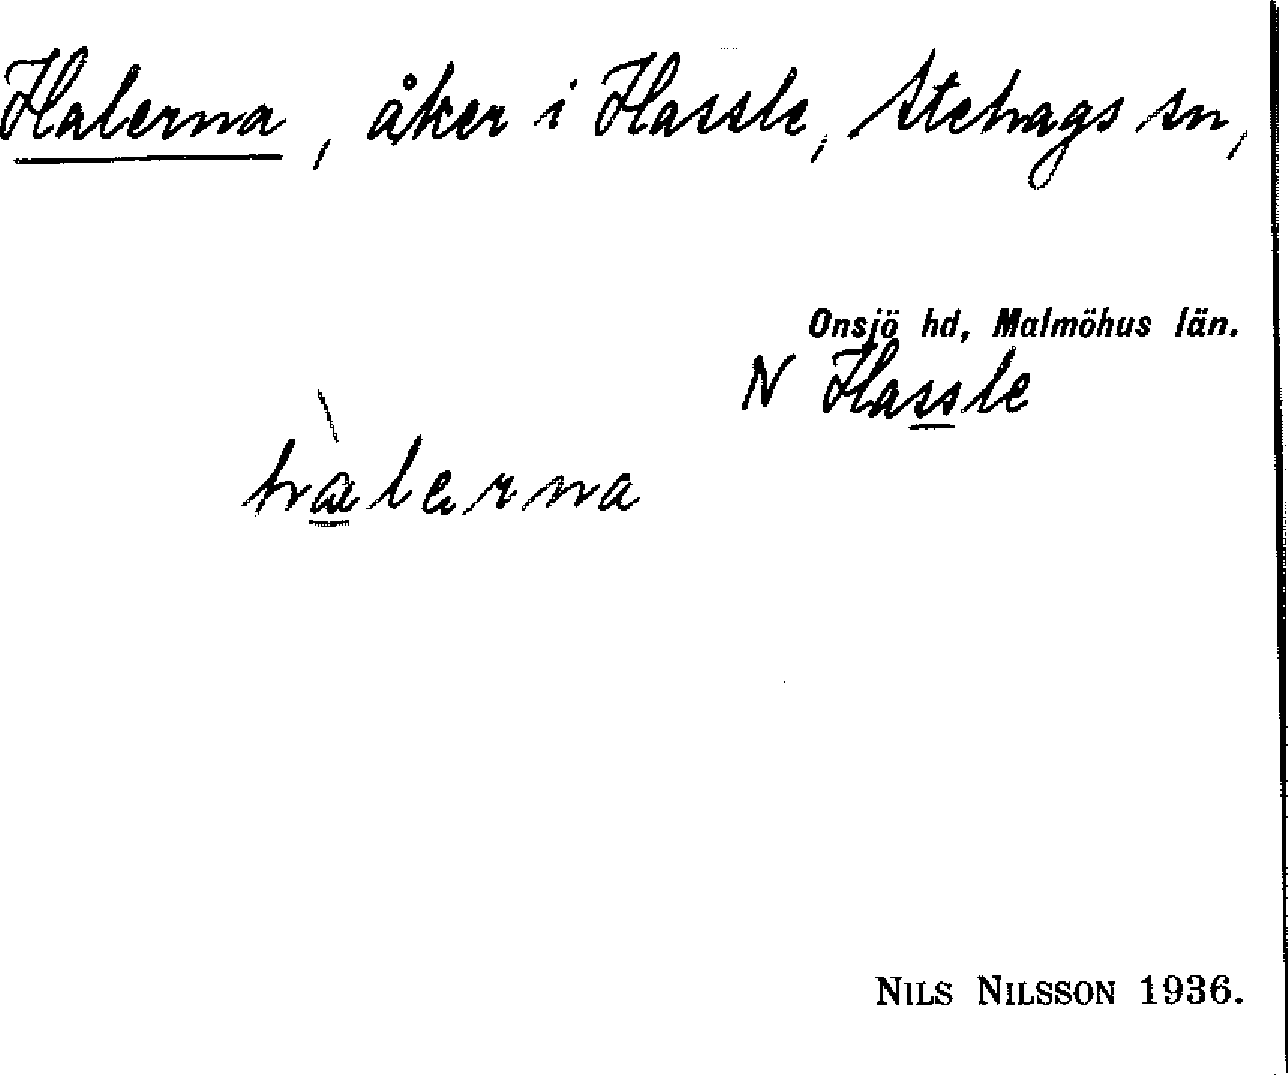 Halerna, åker i Hassle, Stehags sn,
Onsjö hd, Malmöhus län.
N Hassle
hàlerna
NILS NILSSON 1936.